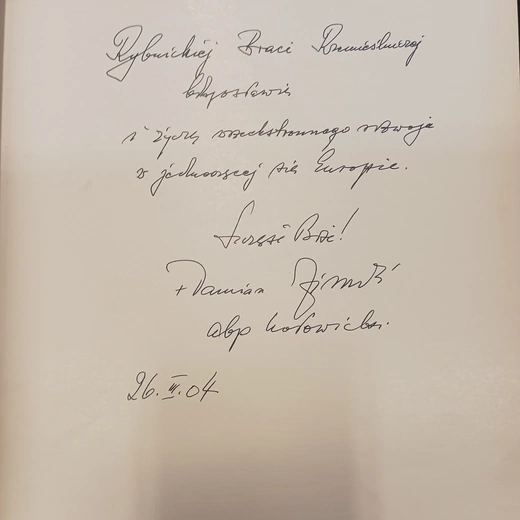 Rybnickiej Braci Rzemieślniczej
błogosławię
i życzę wszechstronnego rozwoju
w jednoczącej się Europie.
Szczęść Boże!
+ Damian Zimoń
abp katowicki
26.III.04